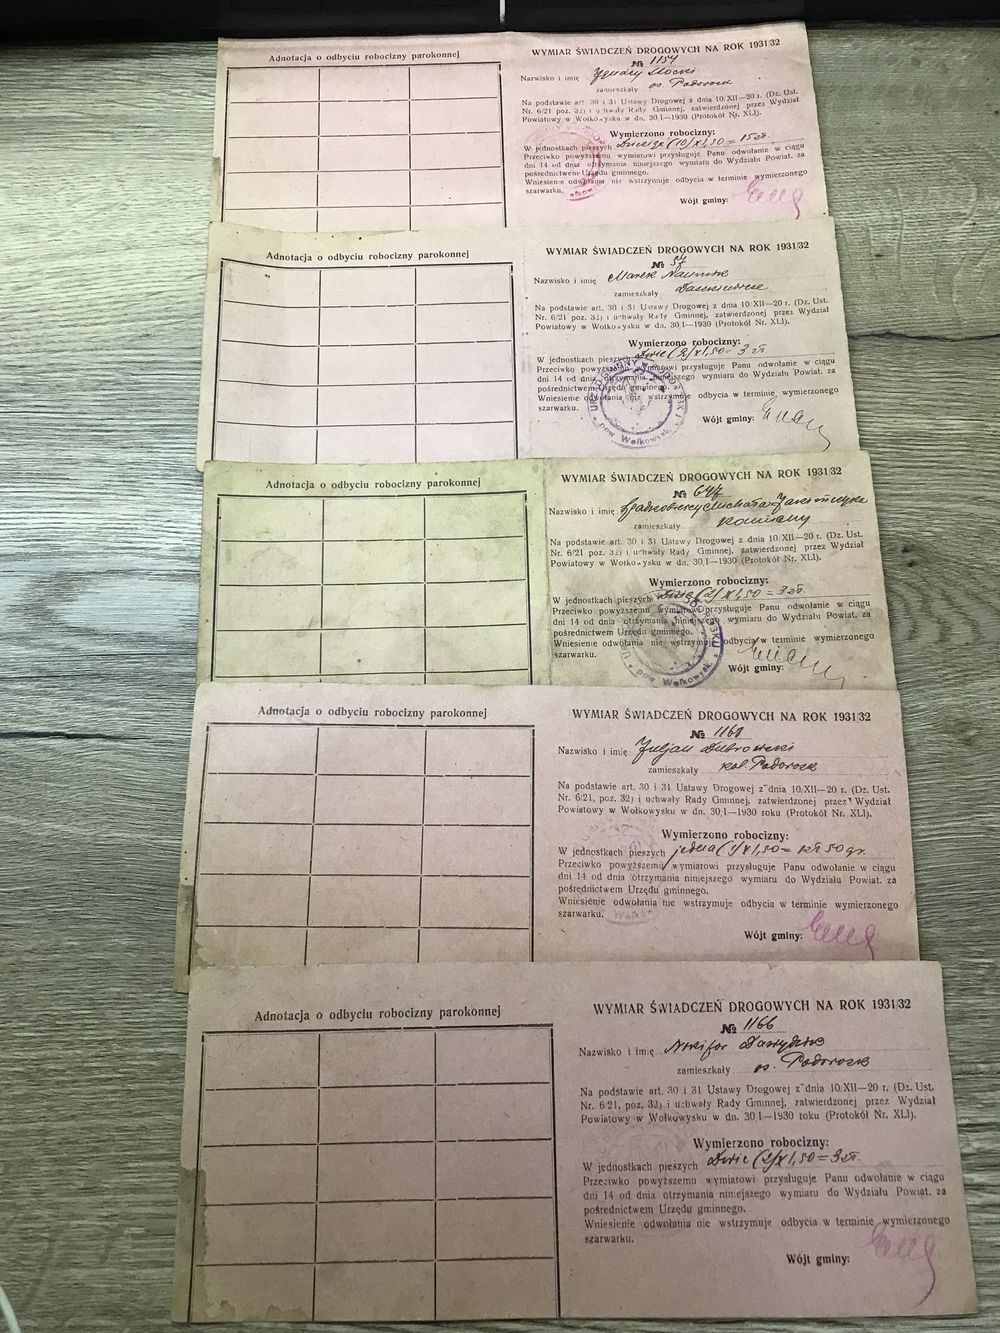 Adnotacja o odbyciu robocizny parokonnej
WYMIAR ŚWIADCZEŃ DROGOWYCH NA ROK 1931/32
№ 1154
Nazwisko i imię
zamieszkały os. Podorosk
Na podstawie art. 30 i 31 Ustawy Drogowej z dnia 10.XII—20 r. (Dz. Ust.
Nr. 6/21 poz. 32) i uchwały Rady Gminnej, zatwierdzonej przez Wydział
Powiatowy w Wołkowysku w dn. 30.1—1930 (Protokół Nr. XLI).
Wymierzono robociznę:
W jednostkach pieszych (10) x 1,50 = 15 zł.
Przeciwko powyższemu wymiarowi przysługuje Panu odwołanie w ciągu
dni 14 od dnia otrzymania niniejszego wymiaru do Wydziału Powiat. za
pośrednictwem Urzędu gminnego.
Wniesienie odwołania nie wstrzymuje odbycia w terminie wymierzonego
szarwarku.
Wójt gminy:
Adnotacja o odbyciu robocizny parokonnej
WYMIAR ŚWIADCZEŃ DROGOWYCH NA ROK 1931/32
№ 57
Nazwisko i imię Marek
zamieszkały
Na podstawie art. 30 i 31 Ustawy Drogowej z dnia 10/XII—20 r. (Dz. Ust.
Nr. 6/21 poz. 32) i uchwały Rady Gminnej, zatwierdzonej przez Wydział
Powiatowy w Wołkowysku w dn. 30.1—1930 (Protokół Nr. XLI).
Wymierzono robociznę:
W jednostkach pieszych Dwie (2) x 1,50 = 3 zł.
Przeciwko powyższemu wymiarowi przysługuje Panu odwołanie w ciągu
dni 14 od dnia otrzymania niniejszego wymiaru do Wydziału Powiat. za
pośrednictwem Urzędu gminnego.
Wniesienie odwołania nie wstrzymuje odbycia w terminie wymierzonego
szarwarku.
pow. Wołkowysk.
Wójt gminy:
Adnotacja o odbyciu robocizny parokonnej
WYMIAR ŚWIADCZEŃ DROGOWYCH NA ROK 1931/32
№ 647
Nazwisko i imię
zamieszkały
Na podstawie art. 30 i 31 Ustawy Drogowej z dnia 10.XII—20 r. (Dz. Ust.
Nr. 6/21 poz. 32) i uchwały Rady Gminnej, zatwierdzonej przez Wydział
Powiatowy w Wołkowysku w dn. 30.1—1930 (Protokół Nr. XLI).
Wymierzono robociznę:
W jednostkach pieszych Dwie (2) x 1,50 = 3 zł.
Przeciwko powyższemu wymiarowi przysługuje Panu odwołanie w ciągu
dni 14 od dnia otrzymania niniejszego wymiaru do Wydziału Powiat. za
pośrednictwem Urzędu gminnego.
Wniesienie odwołania nie wstrzymuje odbycia w terminie wymierzonego
szarwarku.
pow. Wołkowysk.
Wójt gminy:
Adnotacja o odbyciu robocizny parokonnej
WYMIAR ŚWIADCZEŃ DROGOWYCH NA ROK 1931/32
№ 1161
Nazwisko i imię Juljan Dubrowski
zamieszkały kol. Podorosk
Na podstawie art. 30 i 31 Ustawy Drogowej z dnia 10/XII—20 r. (Dz. Ust.
Nr. 6/21, poz. 32) i uchwały Rady Gminnej, zatwierdzonej przez Wydział
Powiatowy w Wołkowysku w dn. 30/1—1930 roku (Protokół Nr. XLI).
Wymierzono robocizny:
W jednostkach pieszych jedna (1) x 1,50 = 1 zł 50 gr.
Przeciwko powyższemu wymiarowi przysługuje Panu odwołanie w ciągu
dni 14 od dnia otrzymania niniejszego wymiaru do Wydziału Powiat. za
pośrednictwem Urzędu gminnego.
Wniesienie odwołania nie wstrzymuje odbycia w terminie wymierzonego
szarwarku.
Wójt gminy:
Adnotacja o odbyciu robocizny parokonnej
WYMIAR ŚWIADCZEŃ DROGOWYCH NA ROK 1931/32
№ 1166
Nazwisko i imię Nikifor
zamieszkały os. Podorosk
Na podstawie art. 30 i 31 Ustawy Drogowej z dnia 10/XII—20 r. (Dz. Ust.
Nr. 6/21, poz. 32) i uchwały Rady Gminnej, zatwierdzonej przez Wydział
Powiatowy w Wołkowysku w dn. 30.1—1930 roku (Protokół Nr. XLI).
Wymierzono robocizny:
W jednostkach pieszych Dwie (2) x 1,50 = 3 zł.
Przeciwko powyższemu wymiarowi przysługuje Panu odwołanie w ciągu
dni 14 od dnia otrzymania niniejszego wymiaru do Wydziału Powiat. za
pośrednictwem Urzędu gminnego.
Wniesienie odwołania nie wstrzymuje odbycia w terminie wymierzonego
szarwarku.
Wójt gminy: